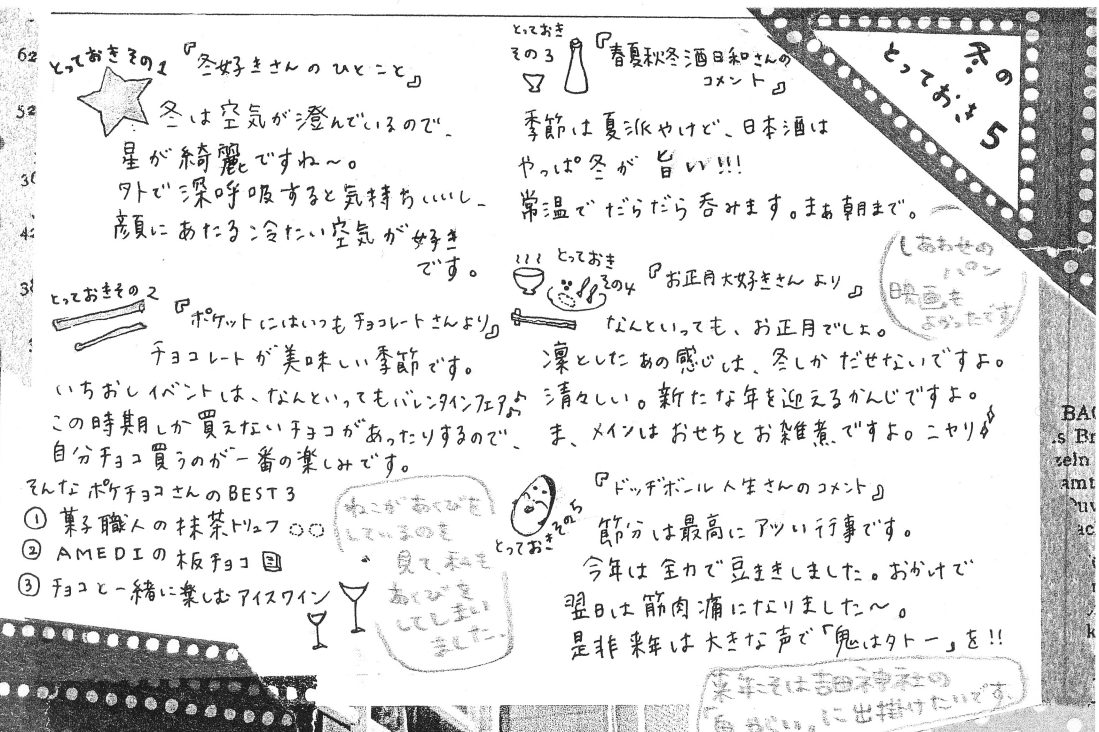 冬の
とっておき5
とっておきその1
『冬好きさんのひとこと』
冬は空気が澄んでいるので、
星が綺麗ですね〜。
外で深呼吸すると気持ちいいし、
顔にあたる冷たい空気が好き
です。
とっておきその2
『ポケットにはいつもチョコレートさんより』
チョコレートが美味しい季節です。
いちおしイベントは、なんといってもバレンタインフェア♪
この時期しか買えないチョコがあったりするので、
自分チョコ買うのが一番の楽しみです。
そんなポケチョコさんのBEST3
① 菓子職人の抹茶トリュフ
② AMEDIの板チョコ
③ チョコと一緒に楽しむアイスワイン
ねこがあくびを
しているのを
見て、私も
あくびを
してしまい
ました。
とっておき
その3
『春夏秋冬酒日和さんの
コメント』
季節は夏派やけど、日本酒は
やっぱ冬が旨い!!!
常温でだらだら呑みます。まぁ朝まで。
しあわせの
パン
映画も
よかったです
とっておき
その4
『お正月大好きさんより』
なんといっても、お正月でしょ。
凜としたあの感じは、冬しかだせないですよ。
清々しい。新たな年を迎えるかんじですよ。
ま、メインはおせちとお雑煮ですよ。ニヤリ
とっておきその5
『ドッヂボール人生さんのコメント』
節分は最高にアツい行事です。
今年は全力で豆まきしました。おかけで
翌日は筋肉痛になりました〜。
是非来年は大きな声で「鬼は外ー」を!!
来年こそは吉田神社の
に出掛けたいです、
62
52
38
BAG
s Br
zeln
amt